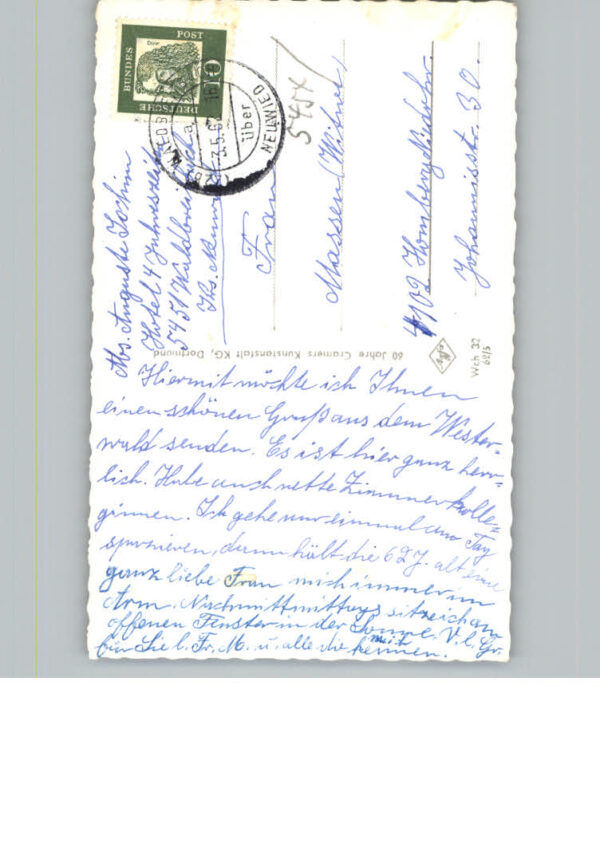 DEUTSCHE
BUNDES
POST
10
über
NEUWIED
5454
Abs. Auguste Jochim
Hotel 4 Jahreszeiten
5451 Waldbreitbach
Krs. Neuwied
Frau
Massen, Witwe,
4102 Homberg Niederrh.
Johannisstr. 30.
60 Jahre Cramers Kunstanstalt KG, Dortmund
Wch 32
62/5
Hiermit möchte ich Ihnen
einen schönen Gruß aus dem Wester-
wald senden. Es ist hier ganz herr-
lich. Habe auch nette Zimmerkolle-
ginnen. Ich gehe nur einmal am Tag
spazieren, dann hält die 62 J. alt eine
ganz liebe Frau mich immer im
Arm. Nachmittags sitze ich am
offenen Finster in der Sonne. V. l. Gr.
für Sie l. Fr. M. u. alle die mich kennen.